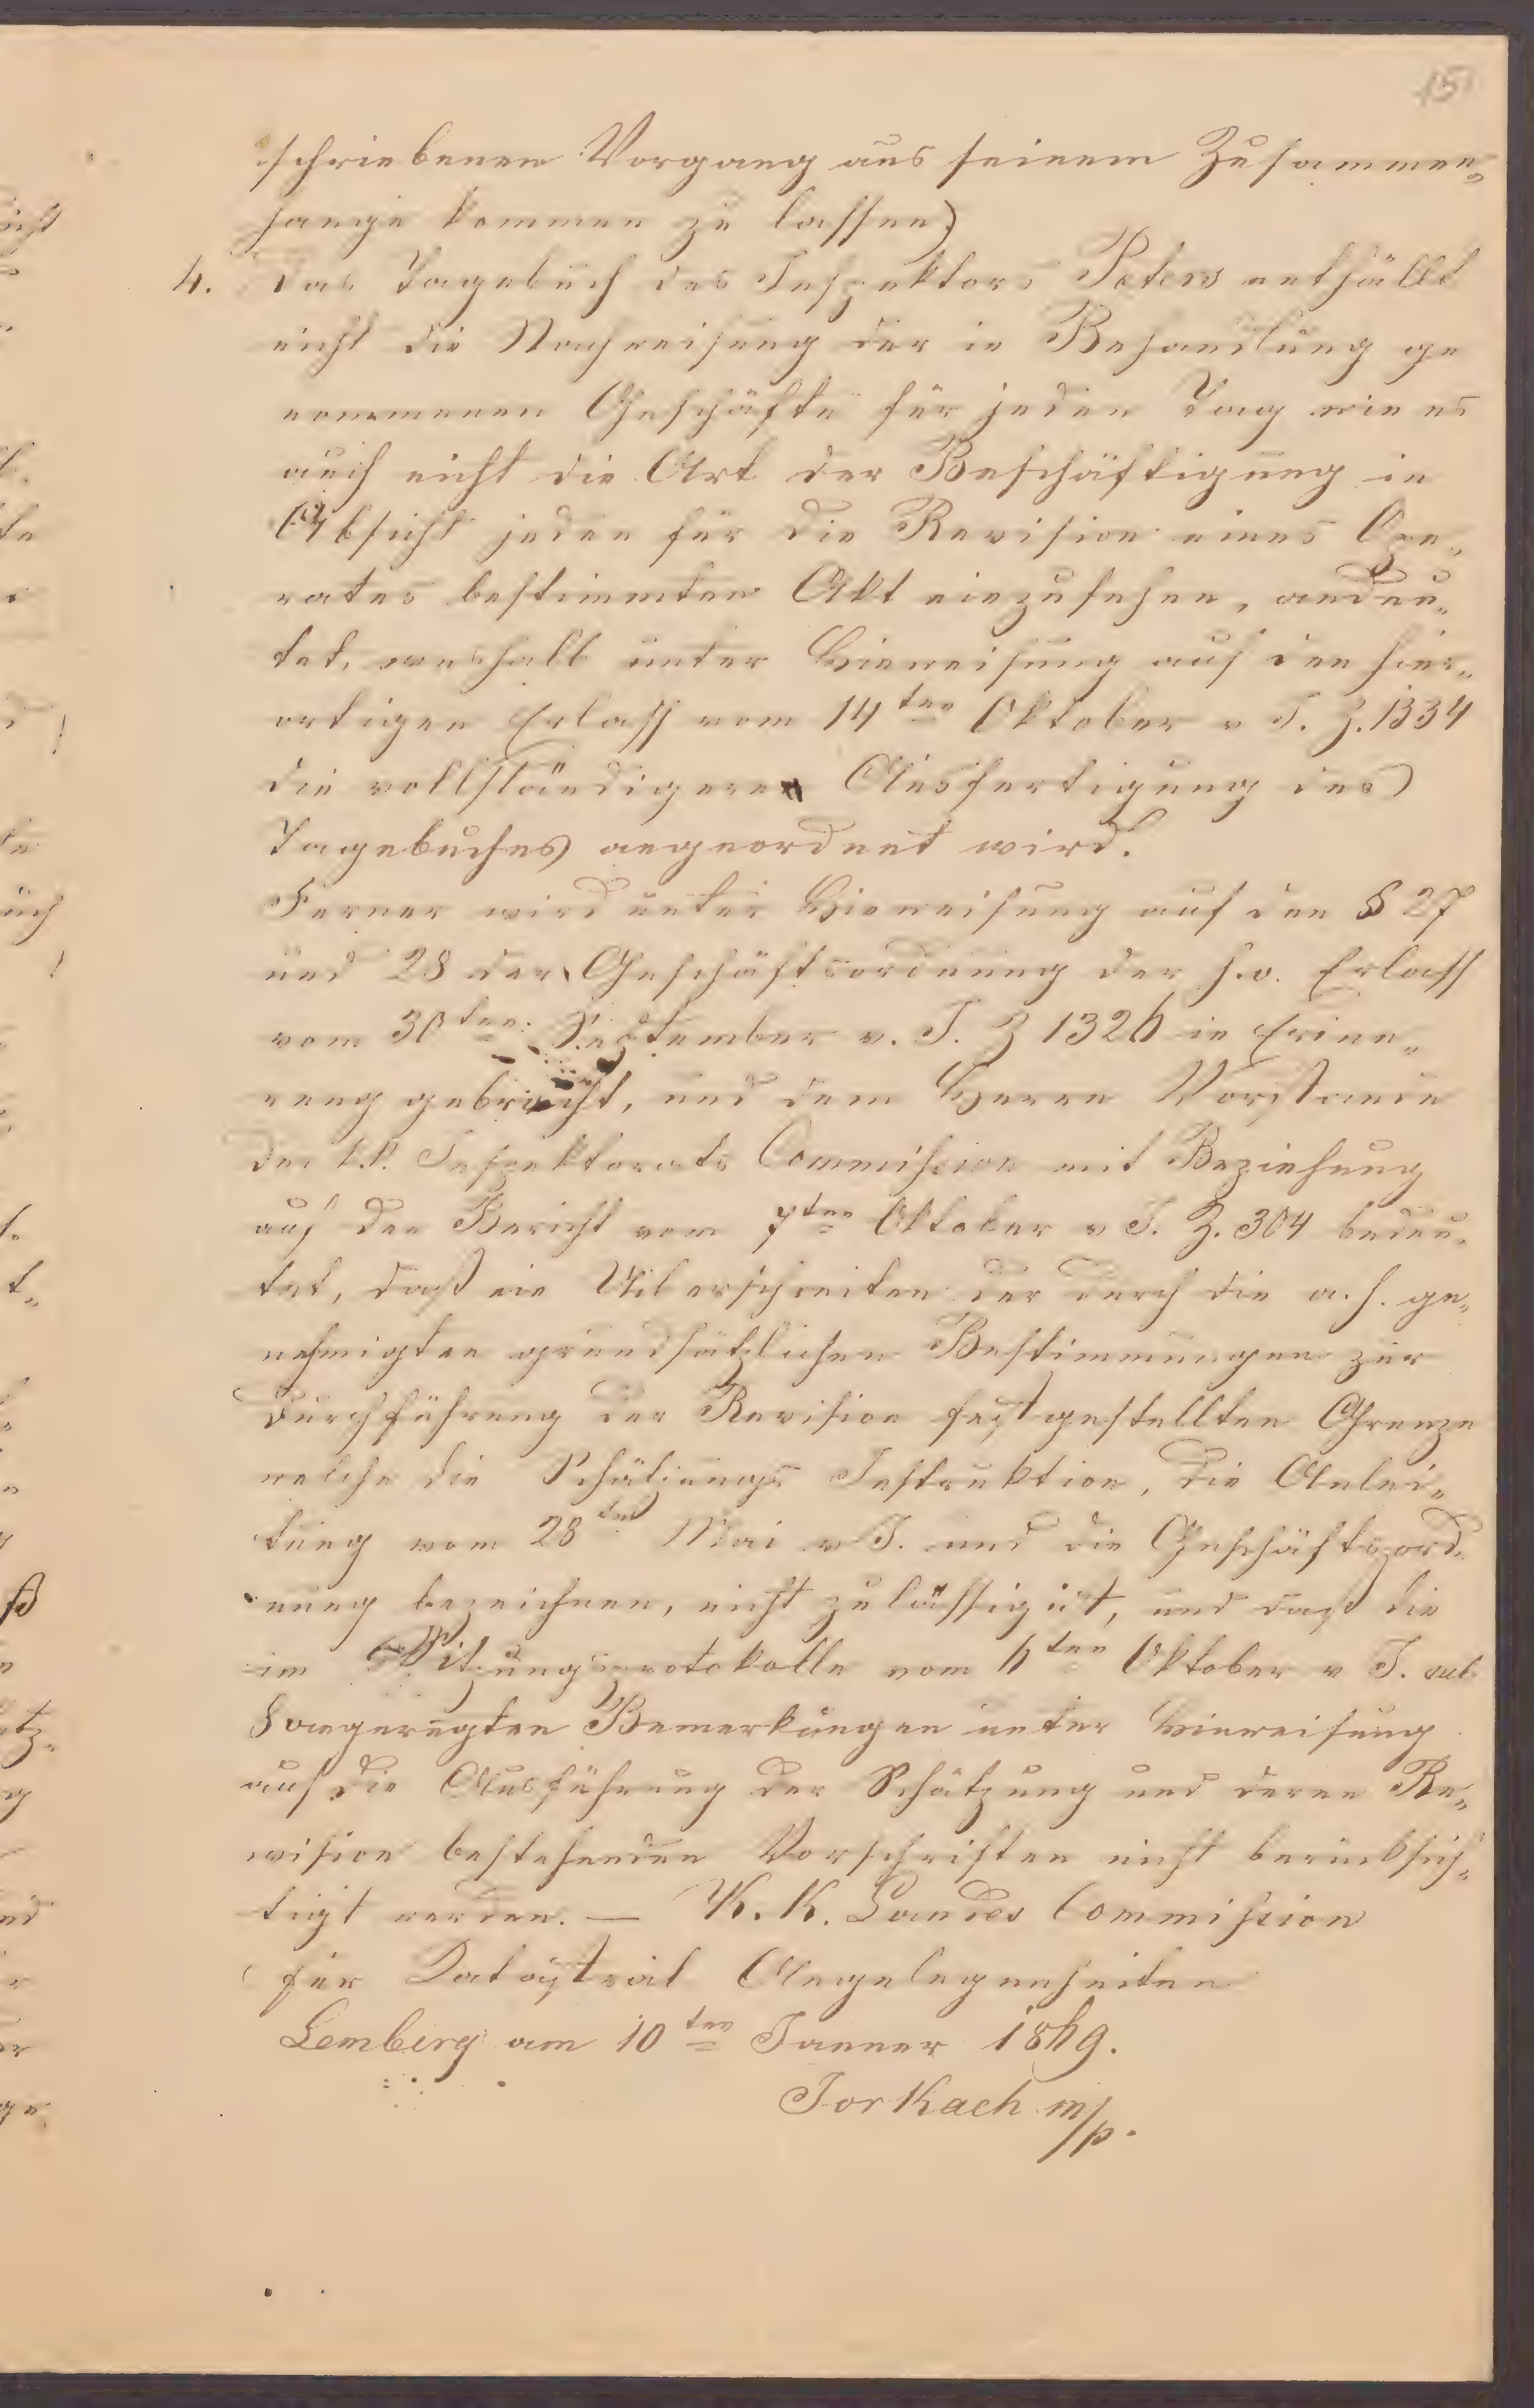 15
schriebenen Vorgang aus seinem Zusammen-
hange kommen zu lassen)
4. Das Tagebuch des Inspektors Peters enthällt
nicht die Nachweisung der in Behandlung ge
nommenen Geschäfte für jeden Tag wie es
auch nicht die Art der Beschäftigung in
Absicht jeden für die Revision eines Ope-
rates bestimmten Akt einzusehen, andeu-
tet, weshalb unter Hinweisung auf den hier-
ortigen Erlass vom 14ten Oktober v J. Z. 1334
die vollständigere Ausfertigung des
Tagebuches angeordnet wird.
Ferner wird unter Hinweisung auf den § 27
und 28 der Geschäftsordnung der h.o. Erlass
vom 30ten September v. J. Z 1326 in Erinne-
rung gebracht, und dem Herrn Vorstande
der k.k. Inspektorats Commission mit Beziehung
auf den Bericht vom 7ten Oktober v J. Z. 304 bedeu-
tet, daß ein Uiberschreiten der durch die a. h. ge-
nehmigten grundsätzlichen Bestimmungen zur
Durchführung der Revision festgestellten Grenze
welche die Schätzungs Instruktion, die Anlei-
tung vom 28ten Mai v J. und die Geschäftsord-
nung bezeichnen, nicht zulässig ist, und daß die
im Sitzungsprotokolle vom 6ten Oktober v J. sub
8 angeregten Bemerkungen unter Hinweisung
auf die Ausführung der Schätzung und deren Re-
vision bestehenden Vorschriften nicht berücksich-
tigt werden. — K. K. Landes Commission
für Katastral Angelegenheiten
Lemberg am 10ten Jänner 1869.
Jorkach m/p.